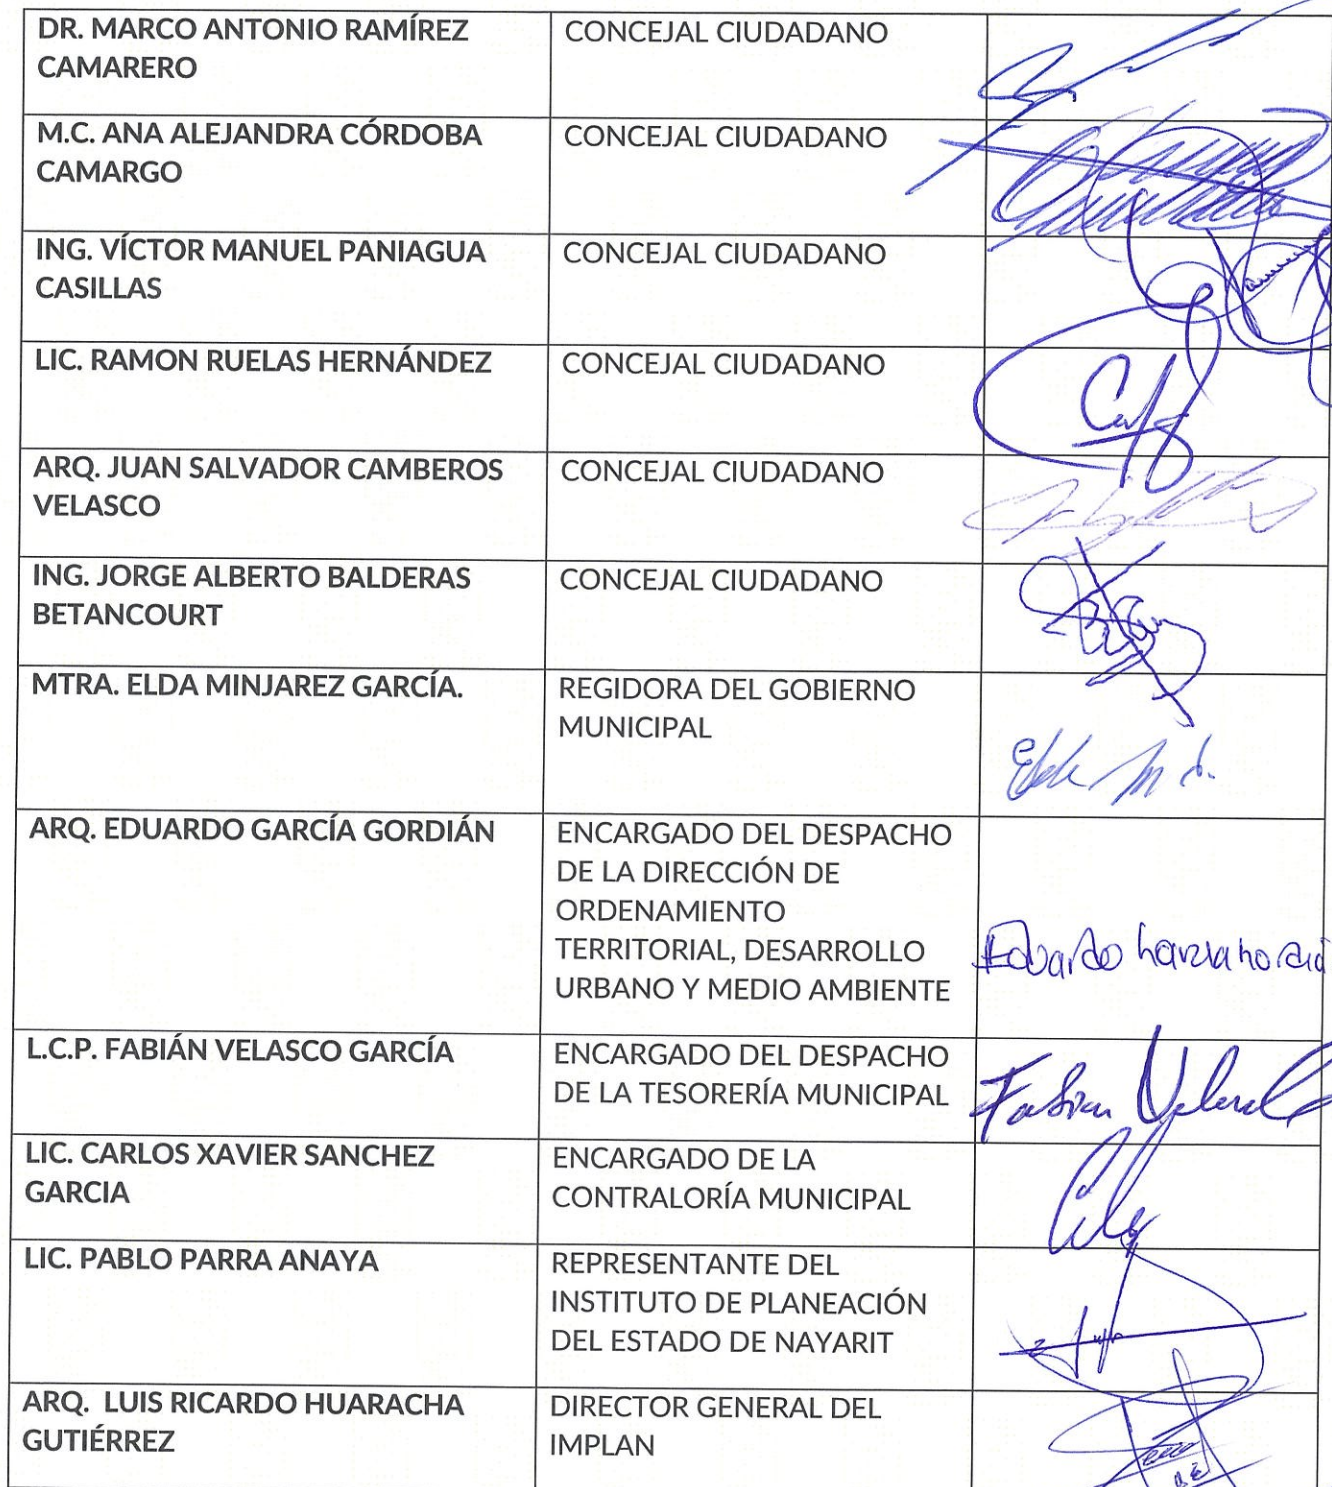 DR. MARCO ANTONIO RAMÍREZ
CAMARERO
CONCEJAL CIUDADANO
M.C. ANA ALEJANDRA CÓRDOBA
CAMARGO
CONCEJAL CIUDADANO
ING. VÍCTOR MANUEL PANIAGUA
CASILLAS
CONCEJAL CIUDADANO
LIC. RAMON RUELAS HERNÁNDEZ
CONCEJAL CIUDADANO
ARQ. JUAN SALVADOR CAMBEROS
VELASCO
CONCEJAL CIUDADANO
ING. JORGE ALBERTO BALDERAS
BETANCOURT
CONCEJAL CIUDADANO
MTRA. ELDA MINJAREZ GARCÍA.
REGIDORA DEL GOBIERNO
MUNICIPAL
ARQ. EDUARDO GARCÍA GORDIÁN
ENCARGADO DEL DESPACHO
DE LA DIRECCIÓN DE
ORDENAMIENTO
TERRITORIAL, DESARROLLO
URBANO Y MEDIO AMBIENTE
Eduardo
L.C.P. FABIÁN VELASCO GARCÍA
ENCARGADO DEL DESPACHO
DE LA TESORERÍA MUNICIPAL
Fabian
LIC. CARLOS XAVIER SANCHEZ
GARCIA
ENCARGADO DE LA
CONTRALORÍA MUNICIPAL
LIC. PABLO PARRA ANAYA
REPRESENTANTE DEL
INSTITUTO DE PLANEACIÓN
DEL ESTADO DE NAYARIT
ARQ. LUIS RICARDO HUARACHA
GUTIÉRREZ
DIRECTOR GENERAL DEL
IMPLAN